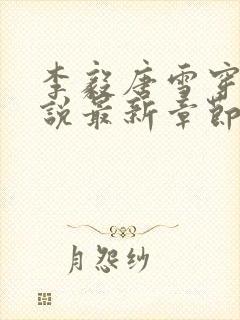 李毅唐雪穿
說最新章節
月怨纱